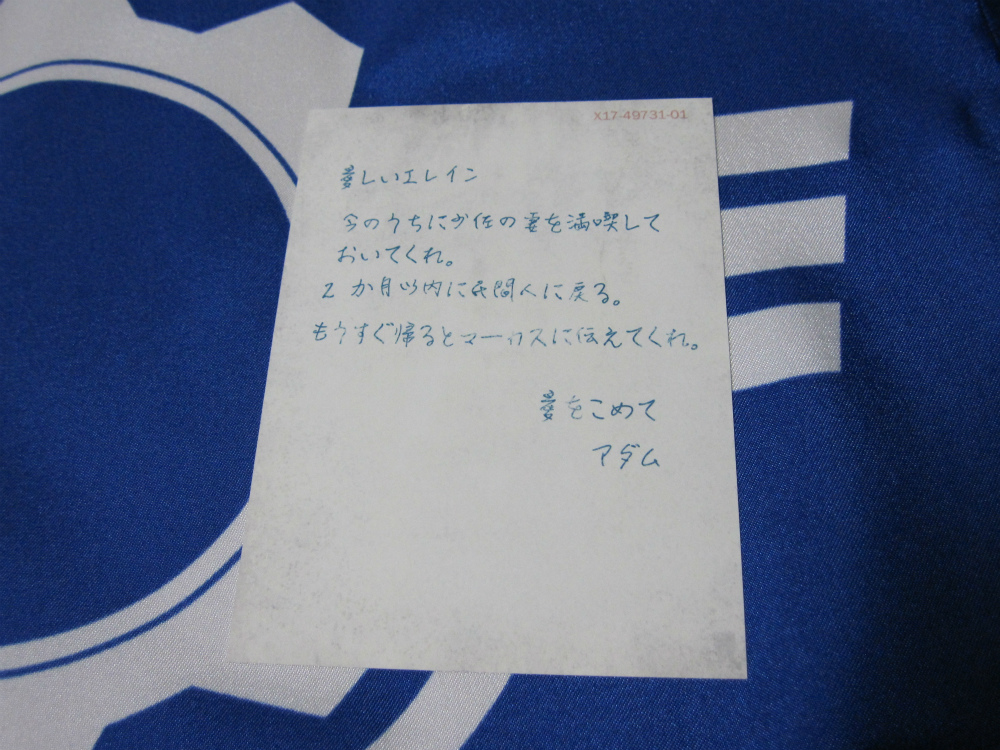 X17-49731-01
愛しいエレイン
今のうちに少佐の妻を満喫して
おいてくれ。
2か月以内に民間人に戻る。
もうすぐ帰るとマーカスに伝えてくれ。
愛をこめて
アダム